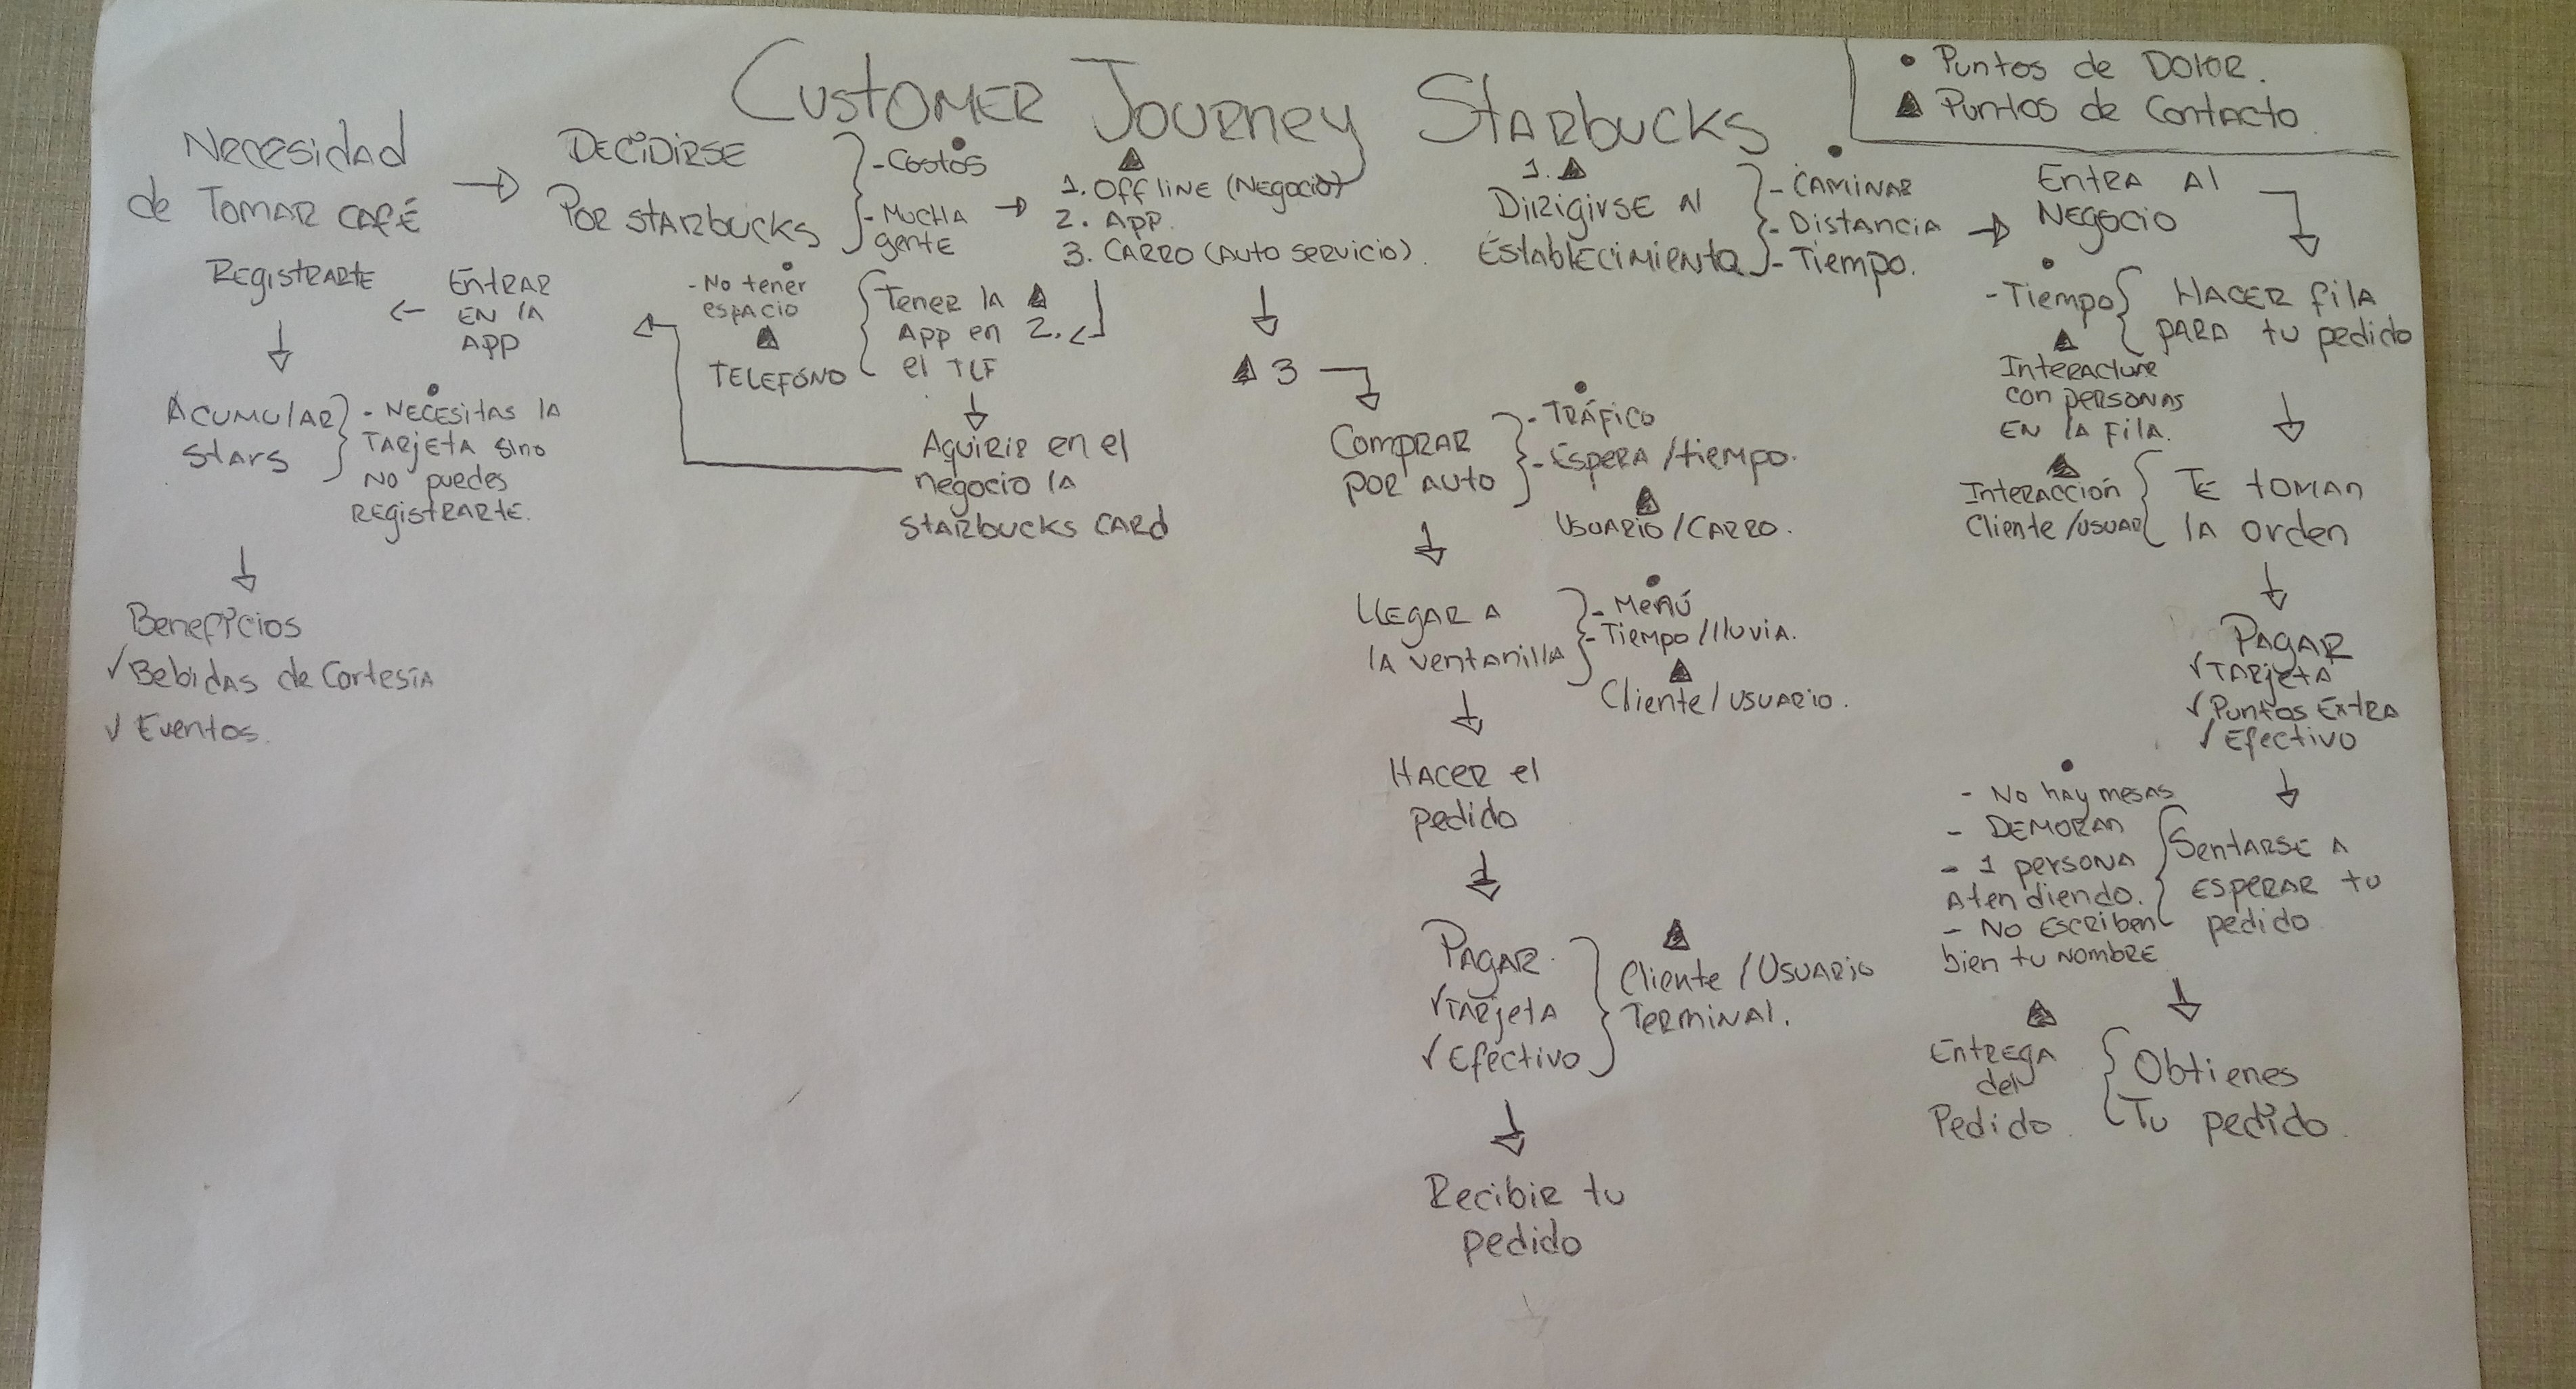 Customer Journey Starbucks
• Puntos de Dolor.
▲ Puntos de Contacto.
Necesidad
de Tomar café
→
Decidirse
Por Starbucks
- Costos
- Mucha
gente
→
1. Offline (Negocio)
2. App.
3. Carro (Auto servicio).
1. ▲
Dirigirse al
Establecimiento
- Caminar
- Distancia
- Tiempo.
→
Entra al
Negocio
- Tiempo
Hacer fila
para tu pedido
Interactúre
con personas
en la fila.
Interacción
Cliente/usuar
Te toman
la orden
Pagar
✓ Tarjeta
✓ Puntos Extra
✓ Efectivo
- No hay mesas
- Demoran
- 1 persona
Atendiendo.
- No escriben
bien tu nombre
Sentarse a
esperar tu
pedido
Entrega
del
Pedido.
Obtienes
Tu pedido.
Tener la ▲
App en 2.
el TLF
- No tener
espacio
Telefóno
Aquirir en el
negocio la
Starbucks Card
Entrar
en la
App
Registrarte
Acumular
Stars
- Necesitas la
Tarjeta sino
No puedes
Registrarte.
Beneficios
✓ Bebidas de Cortesía
✓ Eventos.
▲ 3
Comprar
por auto
- Tráfico
- Espera/tiempo.
Usuario/Carro.
Llegar a
la ventanilla
- Menú
- Tiempo/lluvia.
Cliente/usuario.
Hacer el
pedido
Pagar.
✓ Tarjeta
✓ Efectivo
Cliente/Usuario
Terminal.
Recibir tu
pedido